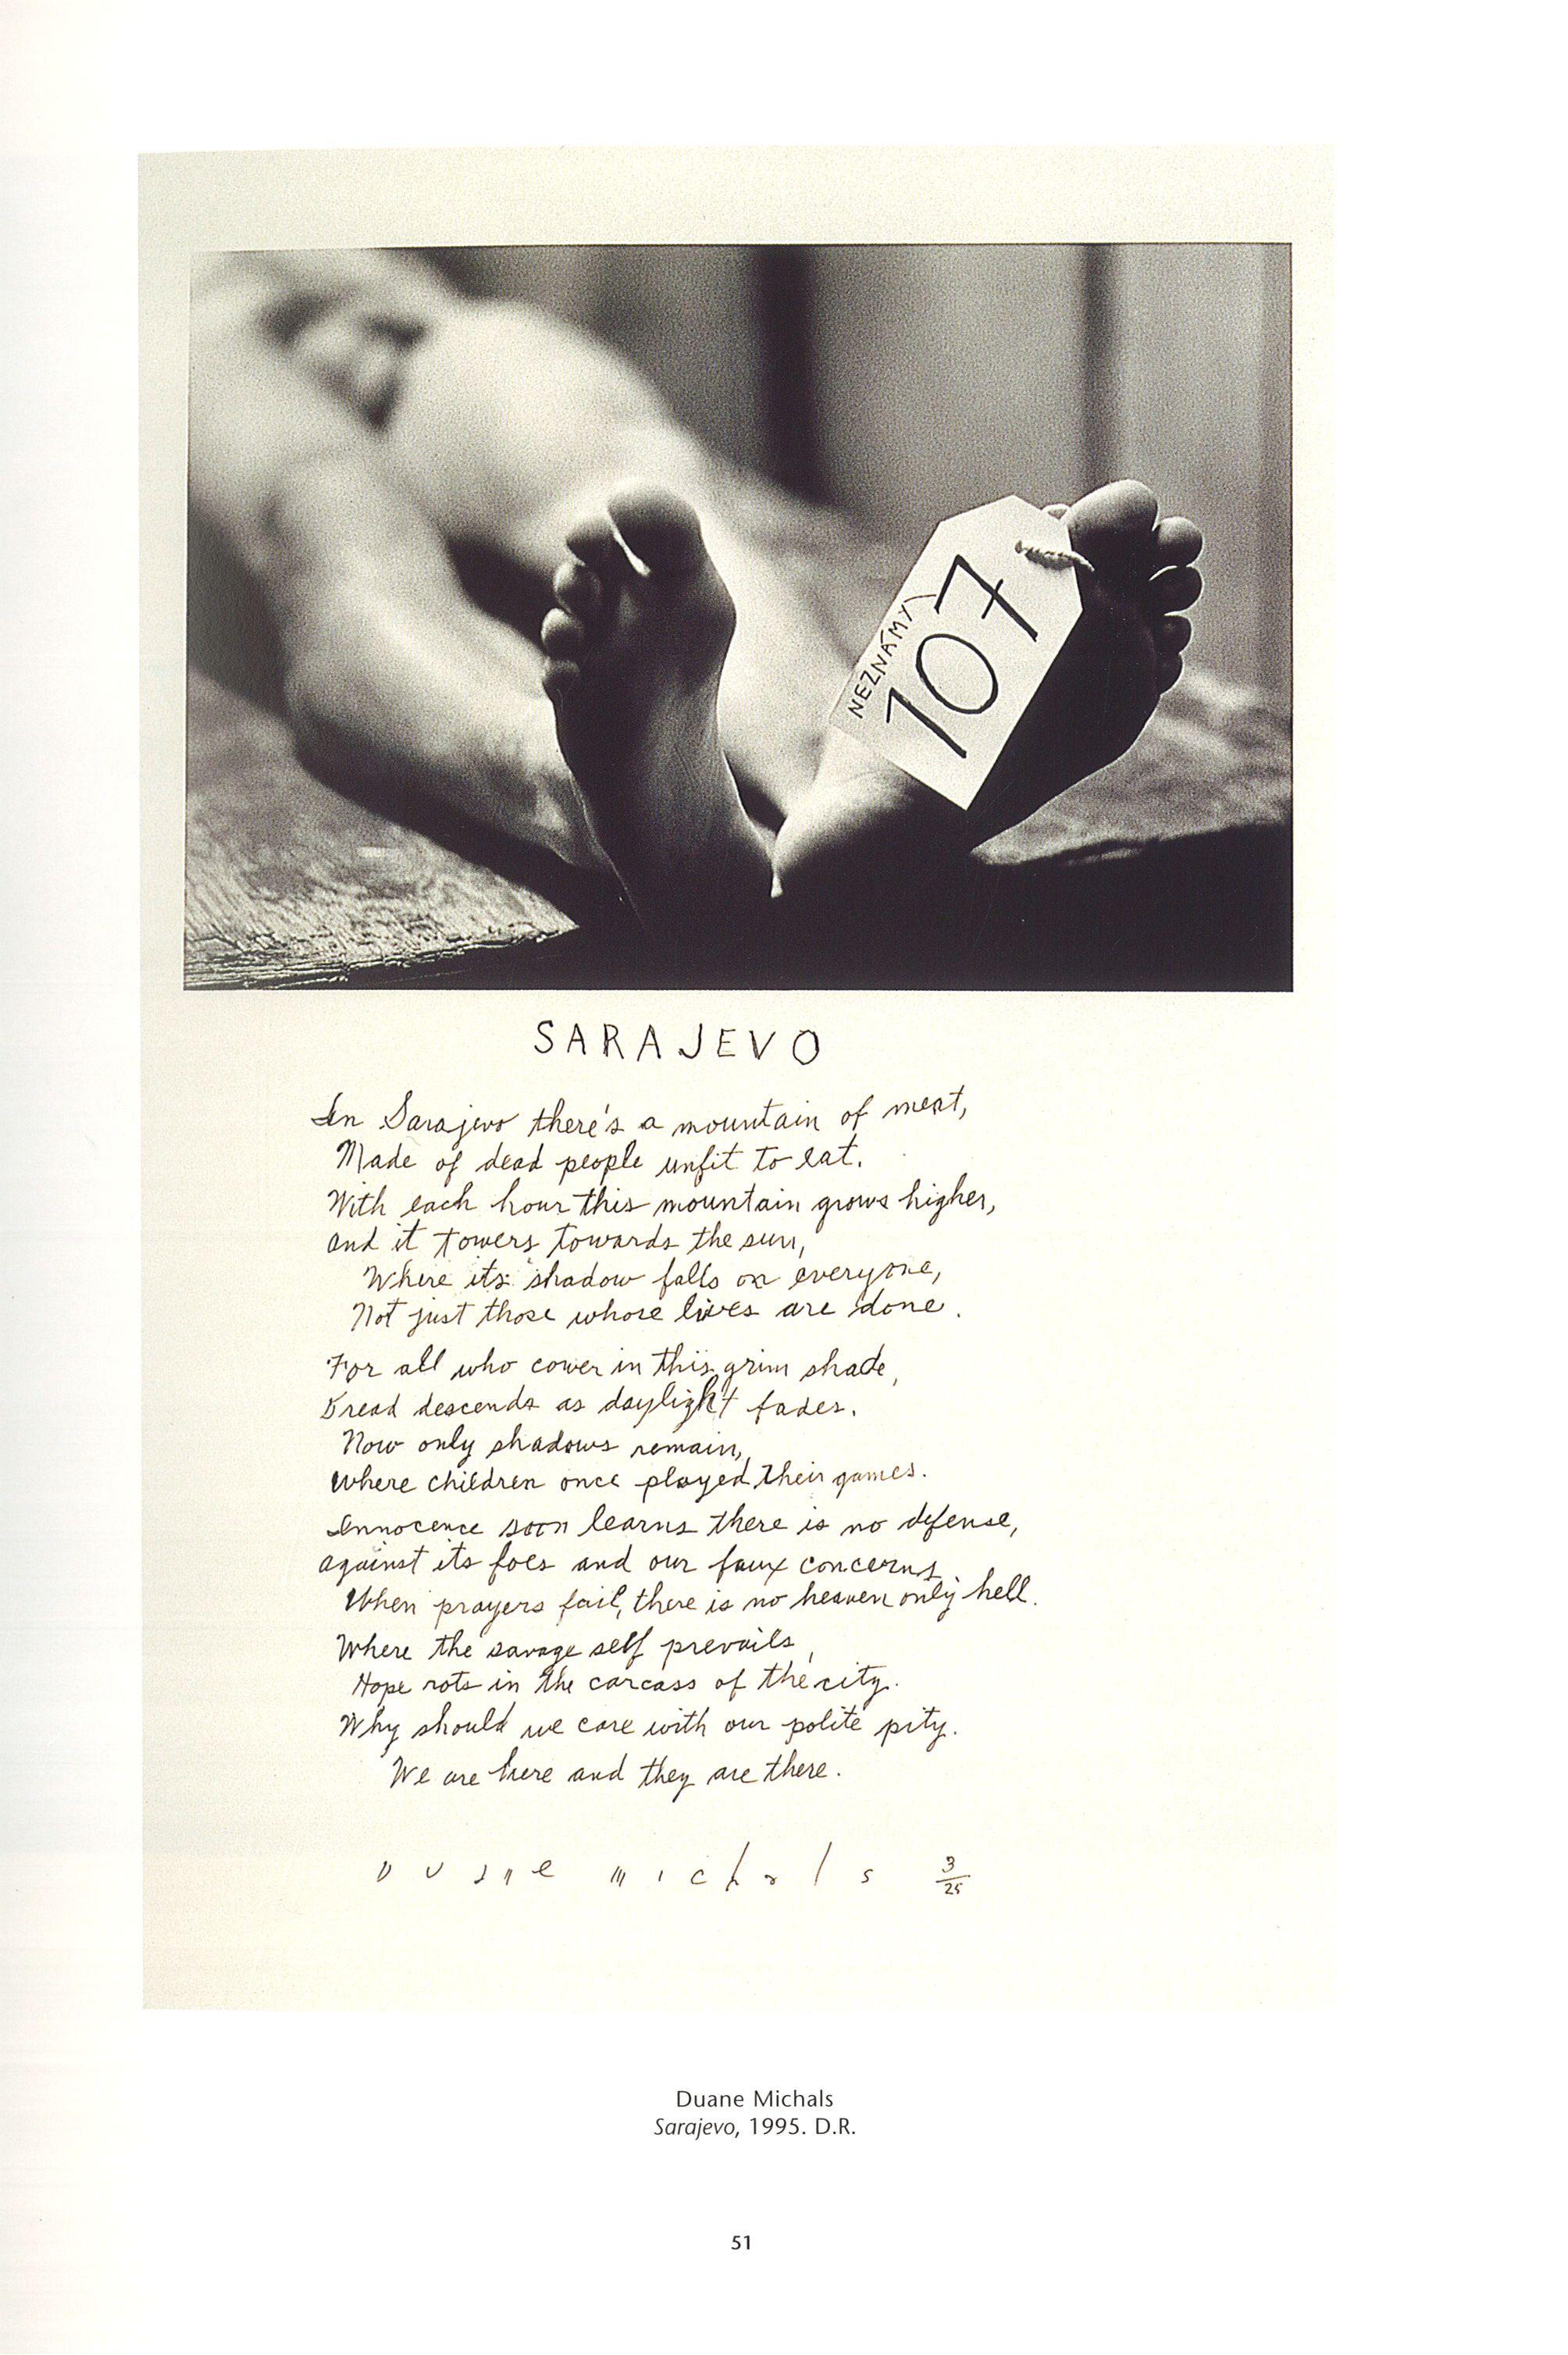 NEZNÁMY
107
SARAJEVO
In Sarajevo there's a mountain of meat,
Made of dead people unfit to eat.
With each hour this mountain grows higher,
and it towers towards the sun,
Where its shadow falls on everyone,
Not just those whose lives are done.
For all who cower in this grim shade,
Dread descends as daylight fades.
Now only shadows remain,
Where children once played their games.
Innocence soon learns there is no defense,
against its foes and our faux concerns
When prayers fail, there is no heaven only hell.
Where the savage self prevails,
Hope rots in the carcass of the city.
Why should we care with our polite pity.
We are here and they are there.
Duane Michals 3/25
Duane Michals
Sarajevo, 1995. D.R.
51